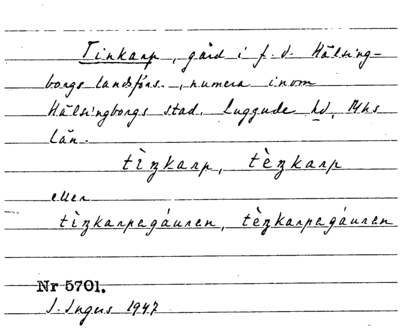 Tinkarp, gård i f.d. Hälsing-
borgs landsförs., numera inom
Hälsingborgs stad. Luggude hd, Mhs
län.
tìŋkarp, tèŋkarp
eller
tìŋkarpagáuren, tèŋkarpagáuren
Nr 5701.
J. Ingers 1947